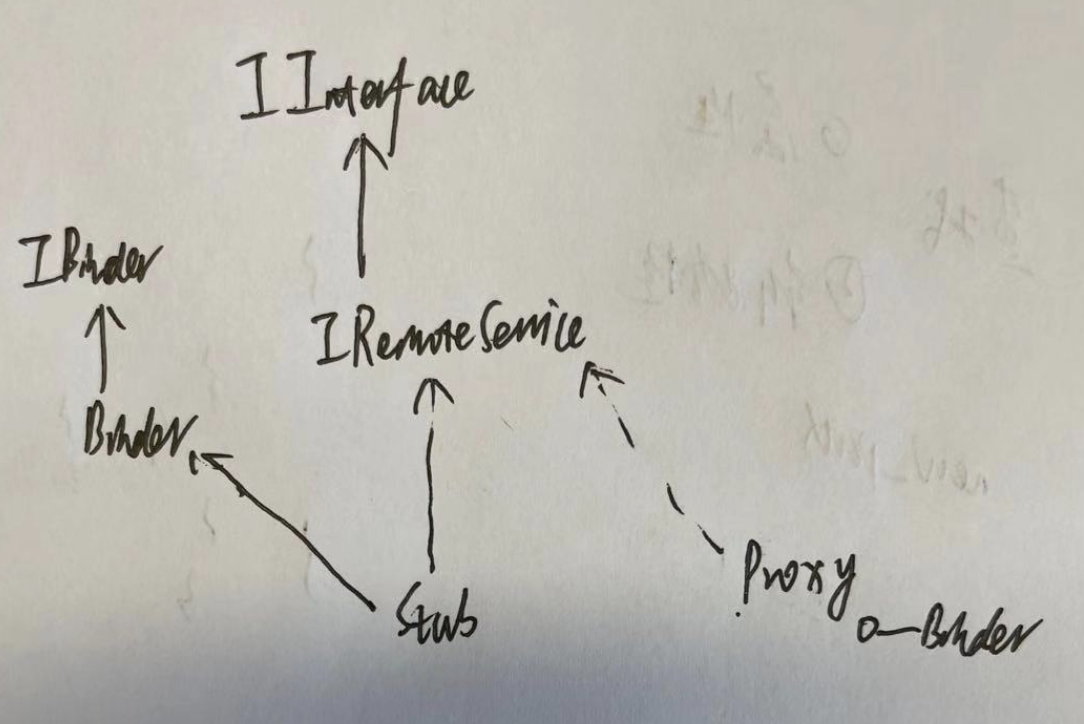 IInterface
IBinder
IRemoteService
Binder
Stub
Proxy
Binder